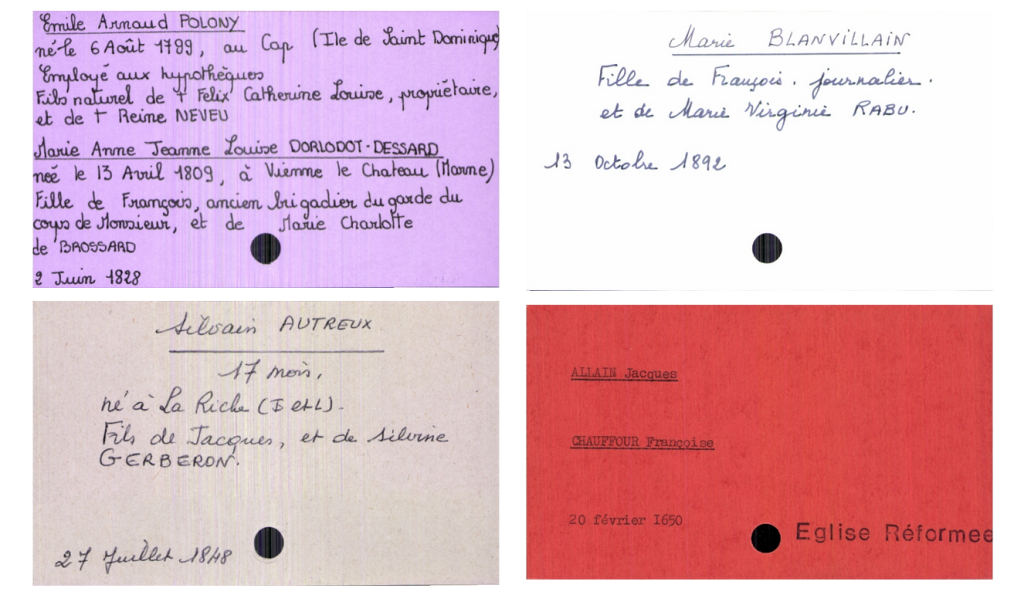 Emile Arnaud POLONY
né le 6 Août 1799, au Cap (Ile de Saint Dominique)
Employé aux hypothèques
Fils naturel de + Felix Catherine Louise, propriétaire,
et de + Reine NEVEU
Marie Anne Jeanne Louise DORLODOT-DESSARD
née le 13 Avril 1809, à Vienne le Chateau (Marne)
Fille de François, ancien brigadier du garde du
coups de Monsieur, et de Marie Charlotte
de BROSSARD
2 Juin 1828
Marie BLANVILLAIN
Fille de François. journalier.
et de Marie Virginie RABU.
13 Octobre 1892
Silvain AUTREUX
17 mois,
né à La Riche (I et L).
Fils de Jacques, et de Silvine
GERBERON.
27 Juillet 1848
ALLAIN Jacques
CHAUFFOUR Françoise
20 février I650
Eglise Réformee